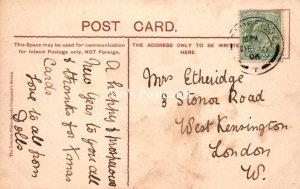 POST CARD.
This Space may be used for communication
for Inland Postage only, NOT Foreign.
THE ADDRESS ONLY TO BE WRITTEN
HERE.
A happy & prosperous
New Year to you all
& thanks for Xmas
Cards
Love to all from
Dolls
Mrs Etheridge
8 Stonor Road
West Kensington
London
W.
DE 30
06